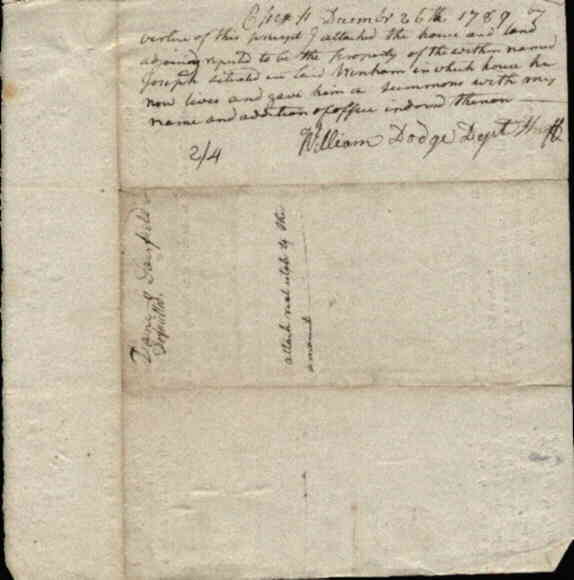 Essex ss Decembr 26th 1789 by
vertue of this precept I attached the house and land
adjoining reputd to be the property of the within named
Joseph situated in said Wenham in which house he
now lives and gave him a summons with my
name and addition of office indorsd thereon
William Dodge Dept Shrff
2/4
attach real estate to the
amount